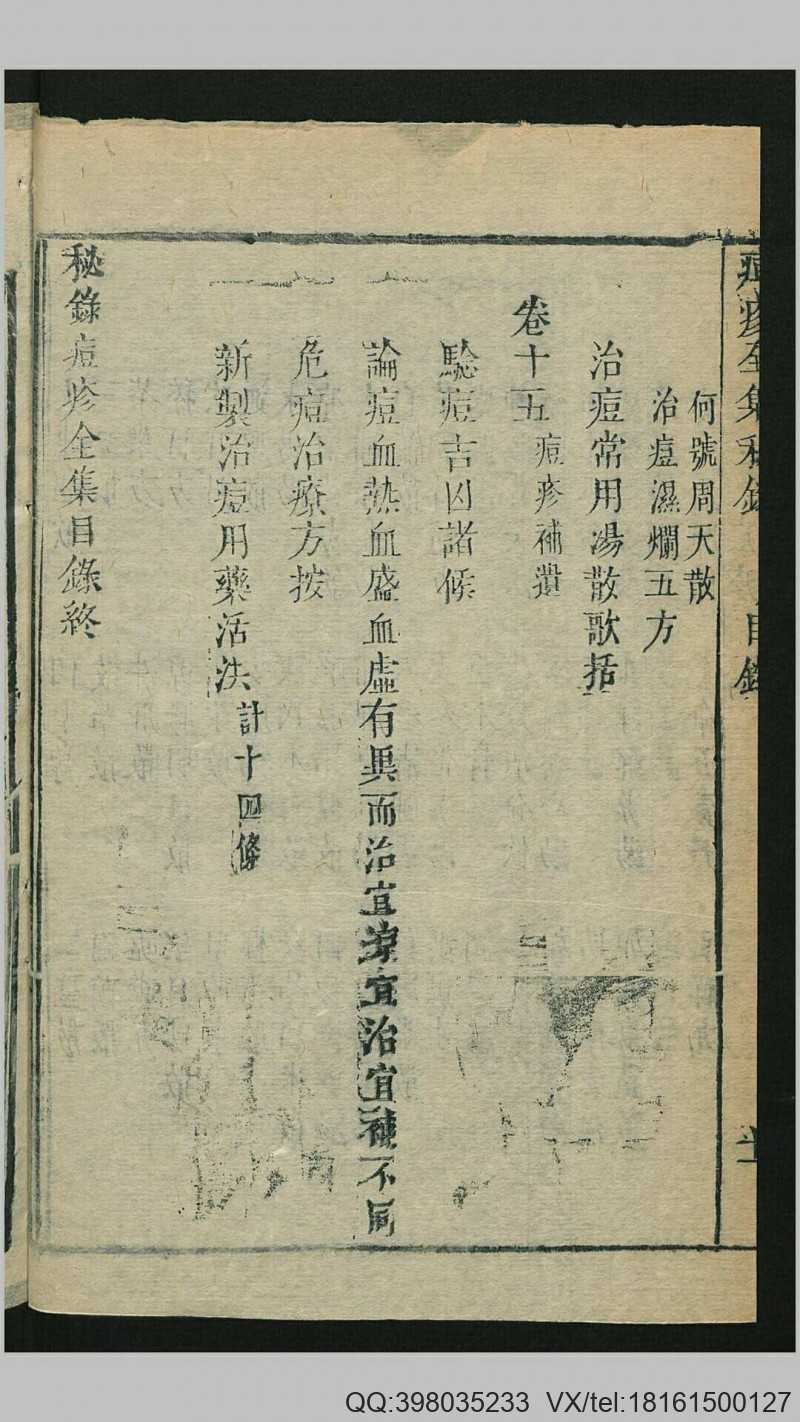 痘疹全集秘錄 目錄
何號周天散
治痘濕爛五方
治痘常用湯散歌括
卷十五 痘疹補遺
驗痘吉凶諸候
論痘血熱血盛血虛有異而治宜涼宜治宜補不同
危痘治療方按
新製治痘用藥活法 計十四條
秘錄痘疹全集目錄終
QQ:398035233 VX/tel:18161500127